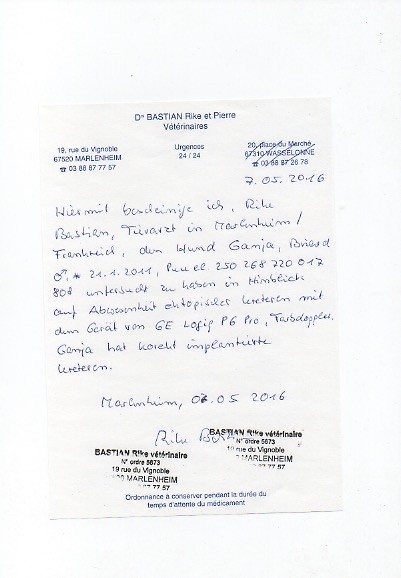 Drs BASTIAN Rike et Pierre
Vétérinaires
19, rue du Vignoble
67520 MARLENHEIM
☎ 03 88 87 77 57
Urgences
24 / 24
20, place du Marché
67310 WASSELONNE
☎ 03 88 87 26 78
7.05.2016
Hiermit bescheinige ich, Rike
Bastian, Tierarzt in Marlenheim/
Frankreich, den Hund Ganja, Briard
♂, * 21.1.2011, Puce el. 250 268 720 017
808 untersucht zu haben in Hinblick
auf Abwesenheit ektopischer Ureteren mit
dem Gerät von GE Logiq P6 Pro, Farbdoppler.
Ganja hat korekt implantierte
Ureteren.
Marlenheim, 07.05 2016
Rike
BASTIAN Rike vétérinaire
N° ordre 5673
rue du Vignoble
MARLENHEIM
87 77 57
BASTIAN Rike vétérinaire
N° ordre 5673
19 rue du Vignoble
MARLENHEIM
87 77 57
Ordonnance à conserver pendant la durée du
temps d'attente du médicament